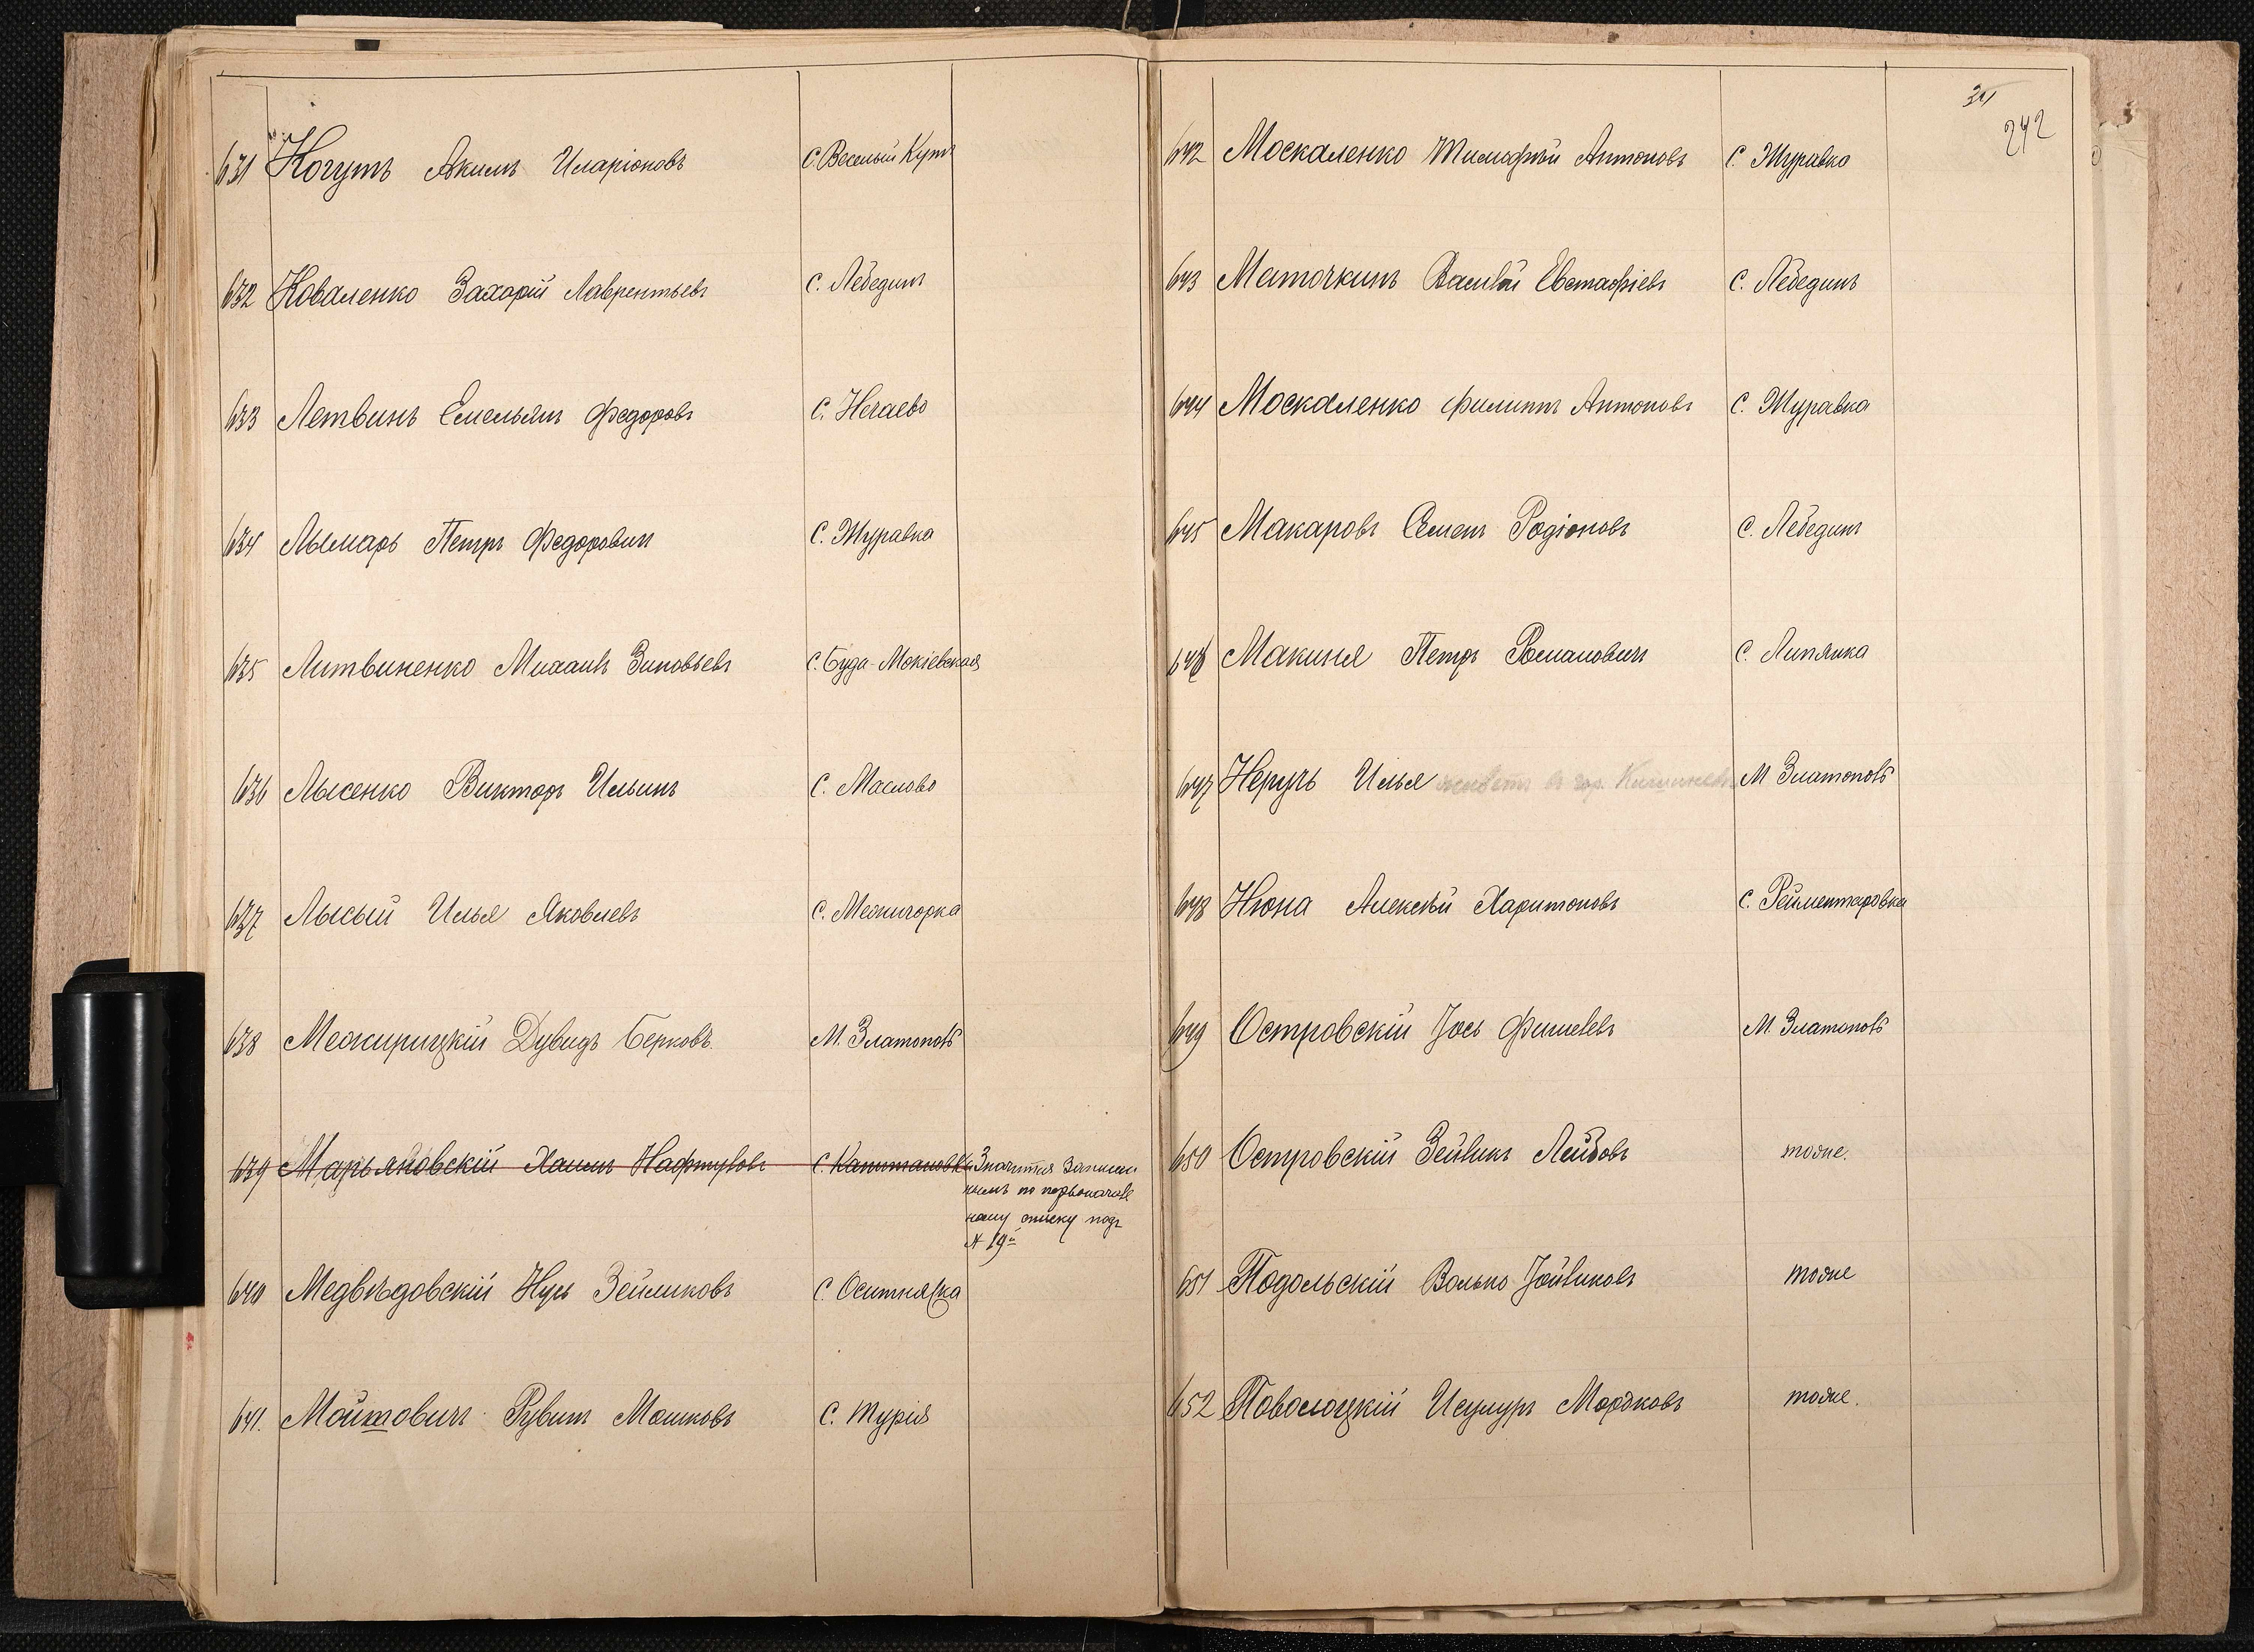 631 Когутъ Акимъ Иларіоновъ С. Веселый Кутъ
632 Коваленко Захарій Лаврентьевъ С. Лебединъ
633 Летвинъ Емельянъ Федоровъ С. Нечаево
634 Лымарь Петръ Федоровичъ С. Журавка
635 Литвиненко Михаилъ Зиновьевъ С. Буда-Мокіевская
636 Лысенко Викторъ Ильинъ С. Маслово
637 Лысый Илья Яковлевъ С. Межигорка
638 Межирицкій Дувидъ Берковъ М. Златополь
639 Марьяновскій Хаимъ Нафтуловъ С. Капитановка Значится записан
нымъ по первоначаль
ному списку подъ
№ 19й
640 Медвѣдовскій Нусь Зейликовъ С. Оситняжка
641. Мойшовичъ Рувинъ Мошковъ С. Турія
242
642 Москаленко Тимофѣй Антоновъ С. Журавка
643 Маточкинъ Василій Евстафіевъ С. Лебединъ
644 Москаленко Филиппъ Антоновъ С. Журавка
645 Макаровъ Семенъ Родіоновъ С. Лебединъ
646 Макиня Петръ Романовичъ С. Липянка
647 Неручь Илья живетъ въ гор. Кишиневѣ М Златополь
648 Нюна Алексѣй Харитоновъ С. Рейментаровка
649 Островскій Іось Фишелевъ М. Златополь
650 Островскій Зейликъ Лейбовъ тоже.
651 Подольскій Волько Іойликовъ тоже
652 Поволоцкій Исумуръ Мордковъ тоже.